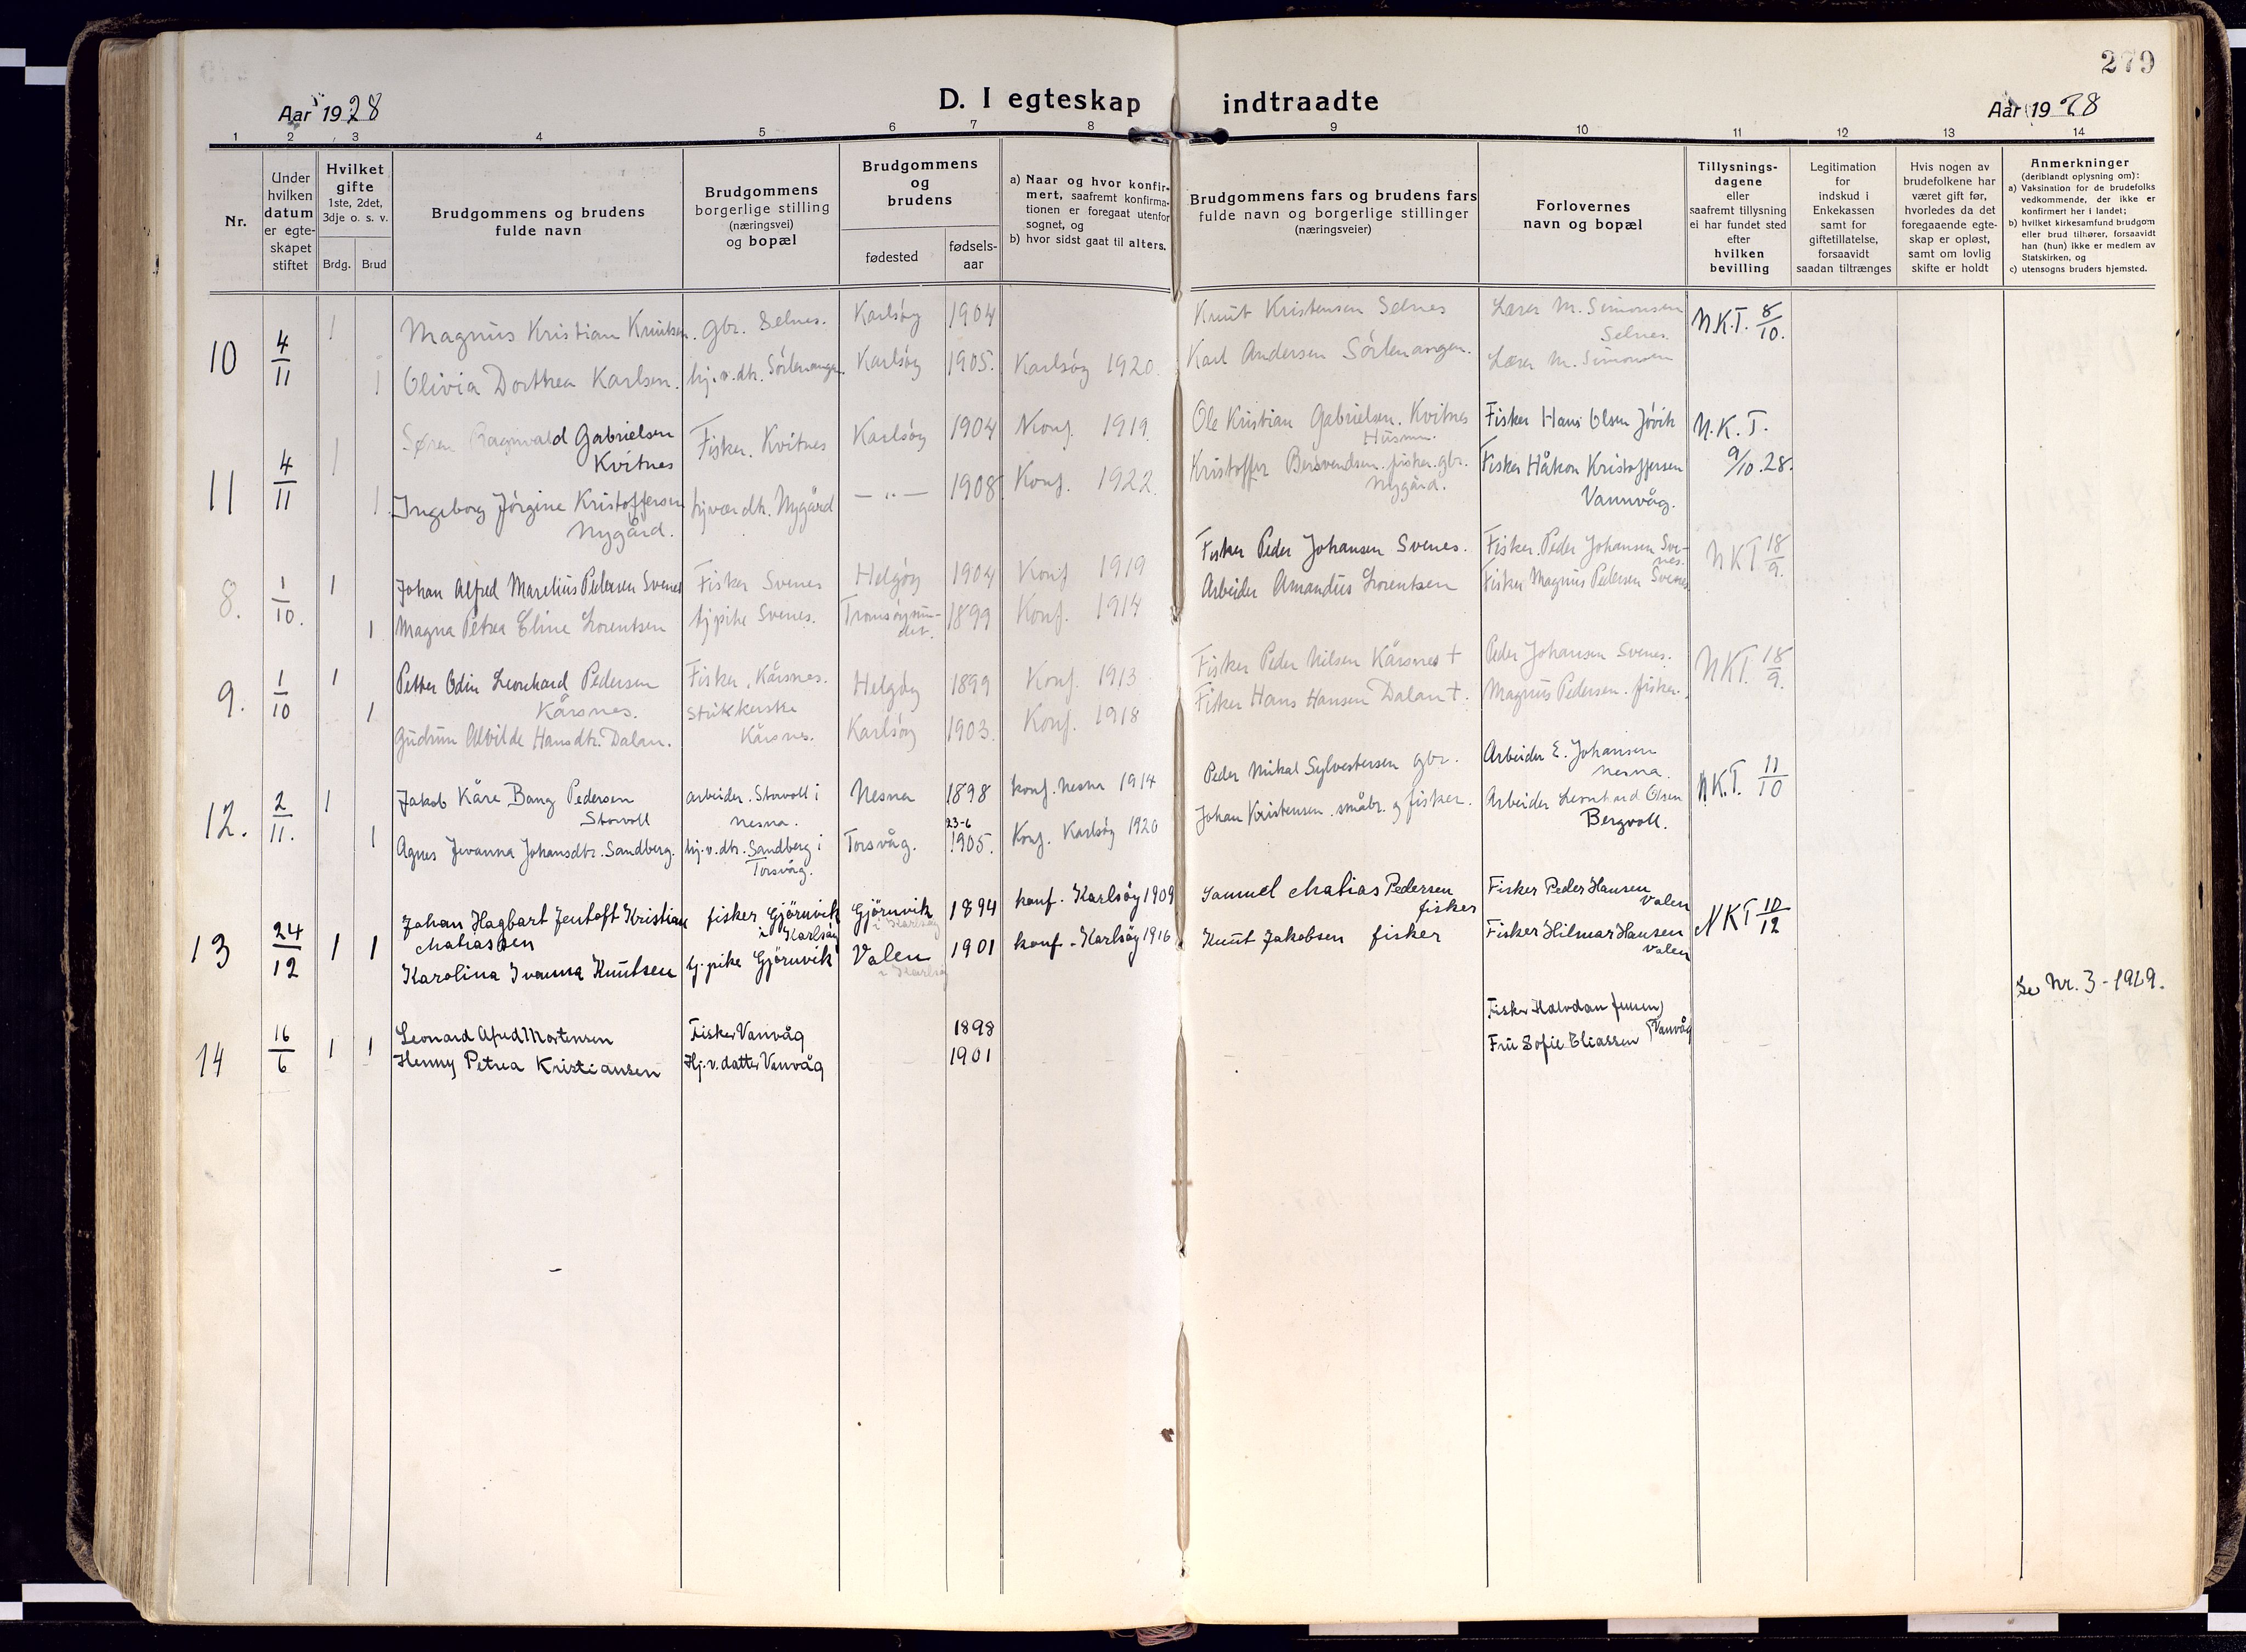 279
Aar 1928
D. I egteskap indtraadte
Aar 1928
1 2 3 4 5 6 7 8 9 10 11 12 13 14
Nr.
Under hvilken datum er egte-skapet stiftet
Hvilket gifte 1ste, 2det, 3dje o. s. v.
Brdg. Brud
Brudgommens og brudens fulde navn
Brudgommens borgerlige stilling (næringsvei) og bopæl
Brudgommens og brudens
fødested
fødsels-aar
a) Naar og hvor konfir-mert, saafremt konfirma-tionen er foregaat utenfor sognet, og
b) hvor sidst gaat til alters.
Brudgommens fars og brudens fars fulde navn og borgerlige stillinger (næringsveier)
Forlovernes navn og bopæl
Tillysnings-dagene eller saafremt tillysning ei har fundet sted efter hvilken bevilling
Legitimation for indskud i Enkekassen samt for giftetillatelse, forsaavidt saadan tiltrænges
Hvis nogen av brudefolkene har været gift før, hvorledes da det foregaaende egte-skap er opløst, samt om lovlig skifte er holdt
Anmerkninger (deriblandt oplysning om):
a) Vaksination for de brudefolks vedkommende, der ikke er konfirmert her i landet;
b) hvilket kirkesamfund brudgom eller brud tilhører, forsaavidt han (hun) ikke er medlem av Statskirken, og
c) utensogns bruders hjemsted.
10 4/11 1 Magnus Kristian Knutsen. gbr. Selnes. Karlsöy 1904 Knut Kristensen Selnes Lærer M. Simonsen Selnes. N.K.T. 8/10.
1 Olivia Dorthea Karlsen. hj.v.dtr. Sörlenangen. Karlsöy 1905. Karlsöy 1920. Karl Andersen Sörlenangen. Lærer M. Simonsen
11 4/11 1 Søren Ragnvald Gabrielsen Kvitnes Fisker. Kvitnes Karlsöy 1904 Konf. 1919. Ole Kristian Gabrielsen. Kvitnes Husm. Fisker Hans Olsen Jövik N.K.T. 9/10.28.
1 Ingeborg Jörgine Kristoffersen Nygård. hj.vær.dtr. Nygård — " — 1908 Konf. 1922. Kristoffer Bersvendsen. fisker. gbr. Nygård. Fisker Håkon Kristoffersen Vannvåg.
8. 1/10. 1 Johan Alfred Marelius Pedersen Svenes Fisker Svenes Helgöy 1904 Konf 1919 Fisker Peder Johansen Svenes. Fisker. Peder Johansen Sve-nes. NKT 18/9.
1 Magna Petrea Eline Lorentsen tj.pike Svenes. Tromsöysun-det. 1899 Konf. 1914 Arbeider Amandus Lorentsen Fisker Magnus Pedersen Svenes
9. 1/10 1 Petter Odin Leonhard Pedersen Kårsnes. Fisker, Kårsnes. Helgöy 1899 Konf. 1913 Fisker Peder Nilsen Kårsnes † Peder Johansen Svenes. NKT. 18/9.
1 Gudrun Alvilde Hansdtr. Dalan. strikkerske Kårsnes. Karlsöy 1903. Konf. 1918 Fisker Hans Hansen Dalan †. Magnus Pedersen. fisker.
12. 2/11. 1 Jakob Kåre Bang Pedersen Storvoll arbeider. Storvoll i Nesna. Nesna 1898 konf. Nesna 1914 Peder Mikal Sylvestersen gbr. Arbeider E. Johansen Nesna. N.K.T. 11/10
1 Agnes Jovanna Johansdtr. Sandberg. hj.v.dtr. Sandberg i Torsvåg. Torsvåg. 23-6 1905. Konf. Karlsöy 1920 Johan Kristensen. småbr. og fisker. Arbeider Leonhard Olsen Bergvoll.
13 24/12 1 1 Johan Hagbart Jentoft Kristian Mathiassen fisker Gjöruvik i Karlsöy Gjöruvik i Karlsöy 1894 konf. Karlsöy 1909 Samuel Mathias Pedersen fisker Fisker Peder Hansen Valen NKT 10/12
Karolina Ivanna Knutsen tj. pike Gjöruvik Valen i Karlsöy 1901 konf. Karlsöy 1916 Knut Jakobsen fisker Fisker Hilmar Hansen Valen
Se Nr. 3 - 1929.
14 16/6 1 1 Leonard Afred Mortensen Fisker Vanvåg 1898 Fisker Halvdan Jensen
Henny Petrea Kristiansen Hj.v.datter Vanvåg 1901 Fru Sofie Eliassen } Vanvåg